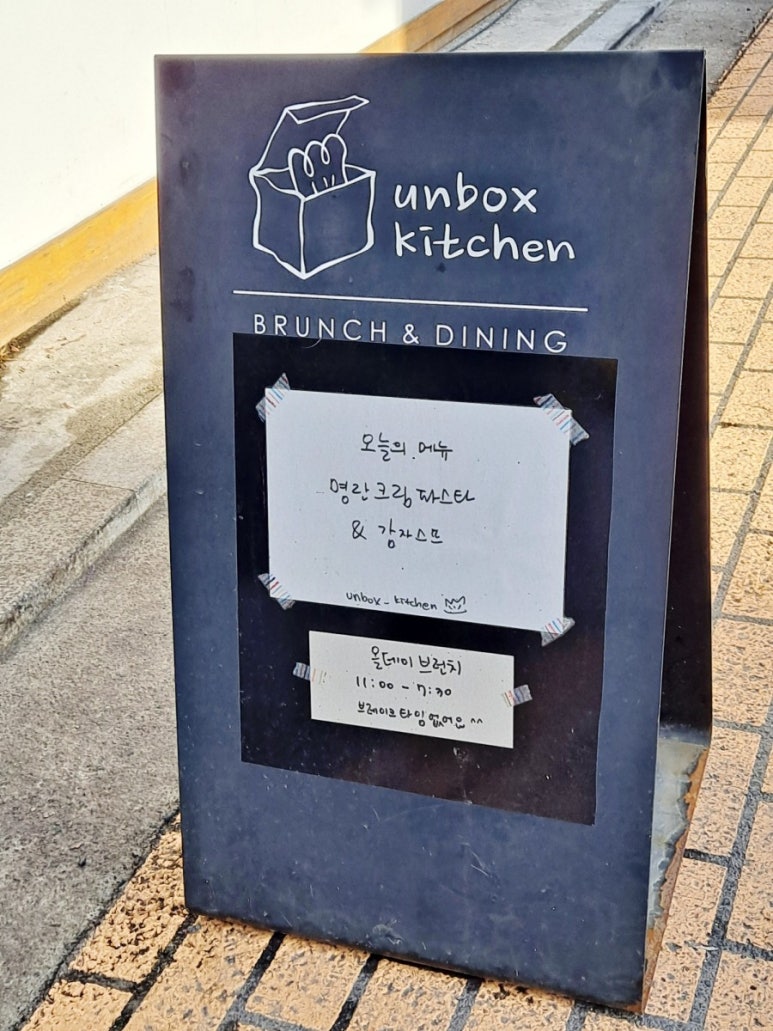 unbox
kitchen
BRUNCH & DINING
오늘의 메뉴
명란크림파스타
& 감자스프
unbox_kitchen
올데이 브런치
11:00 - 7:30
브레이크타임없어용 ^^